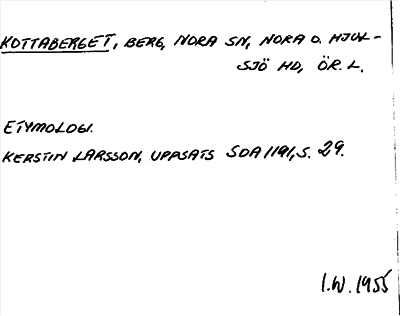 KOTTABERGET, BERG, NORA SN, NORA O. HJUL-
SJÖ HD, ÖR. L.
ETYMOLOGI.
KERSTIN LARSSON, UPPSATS SOA 1191, S. 29.
I.W. 1955